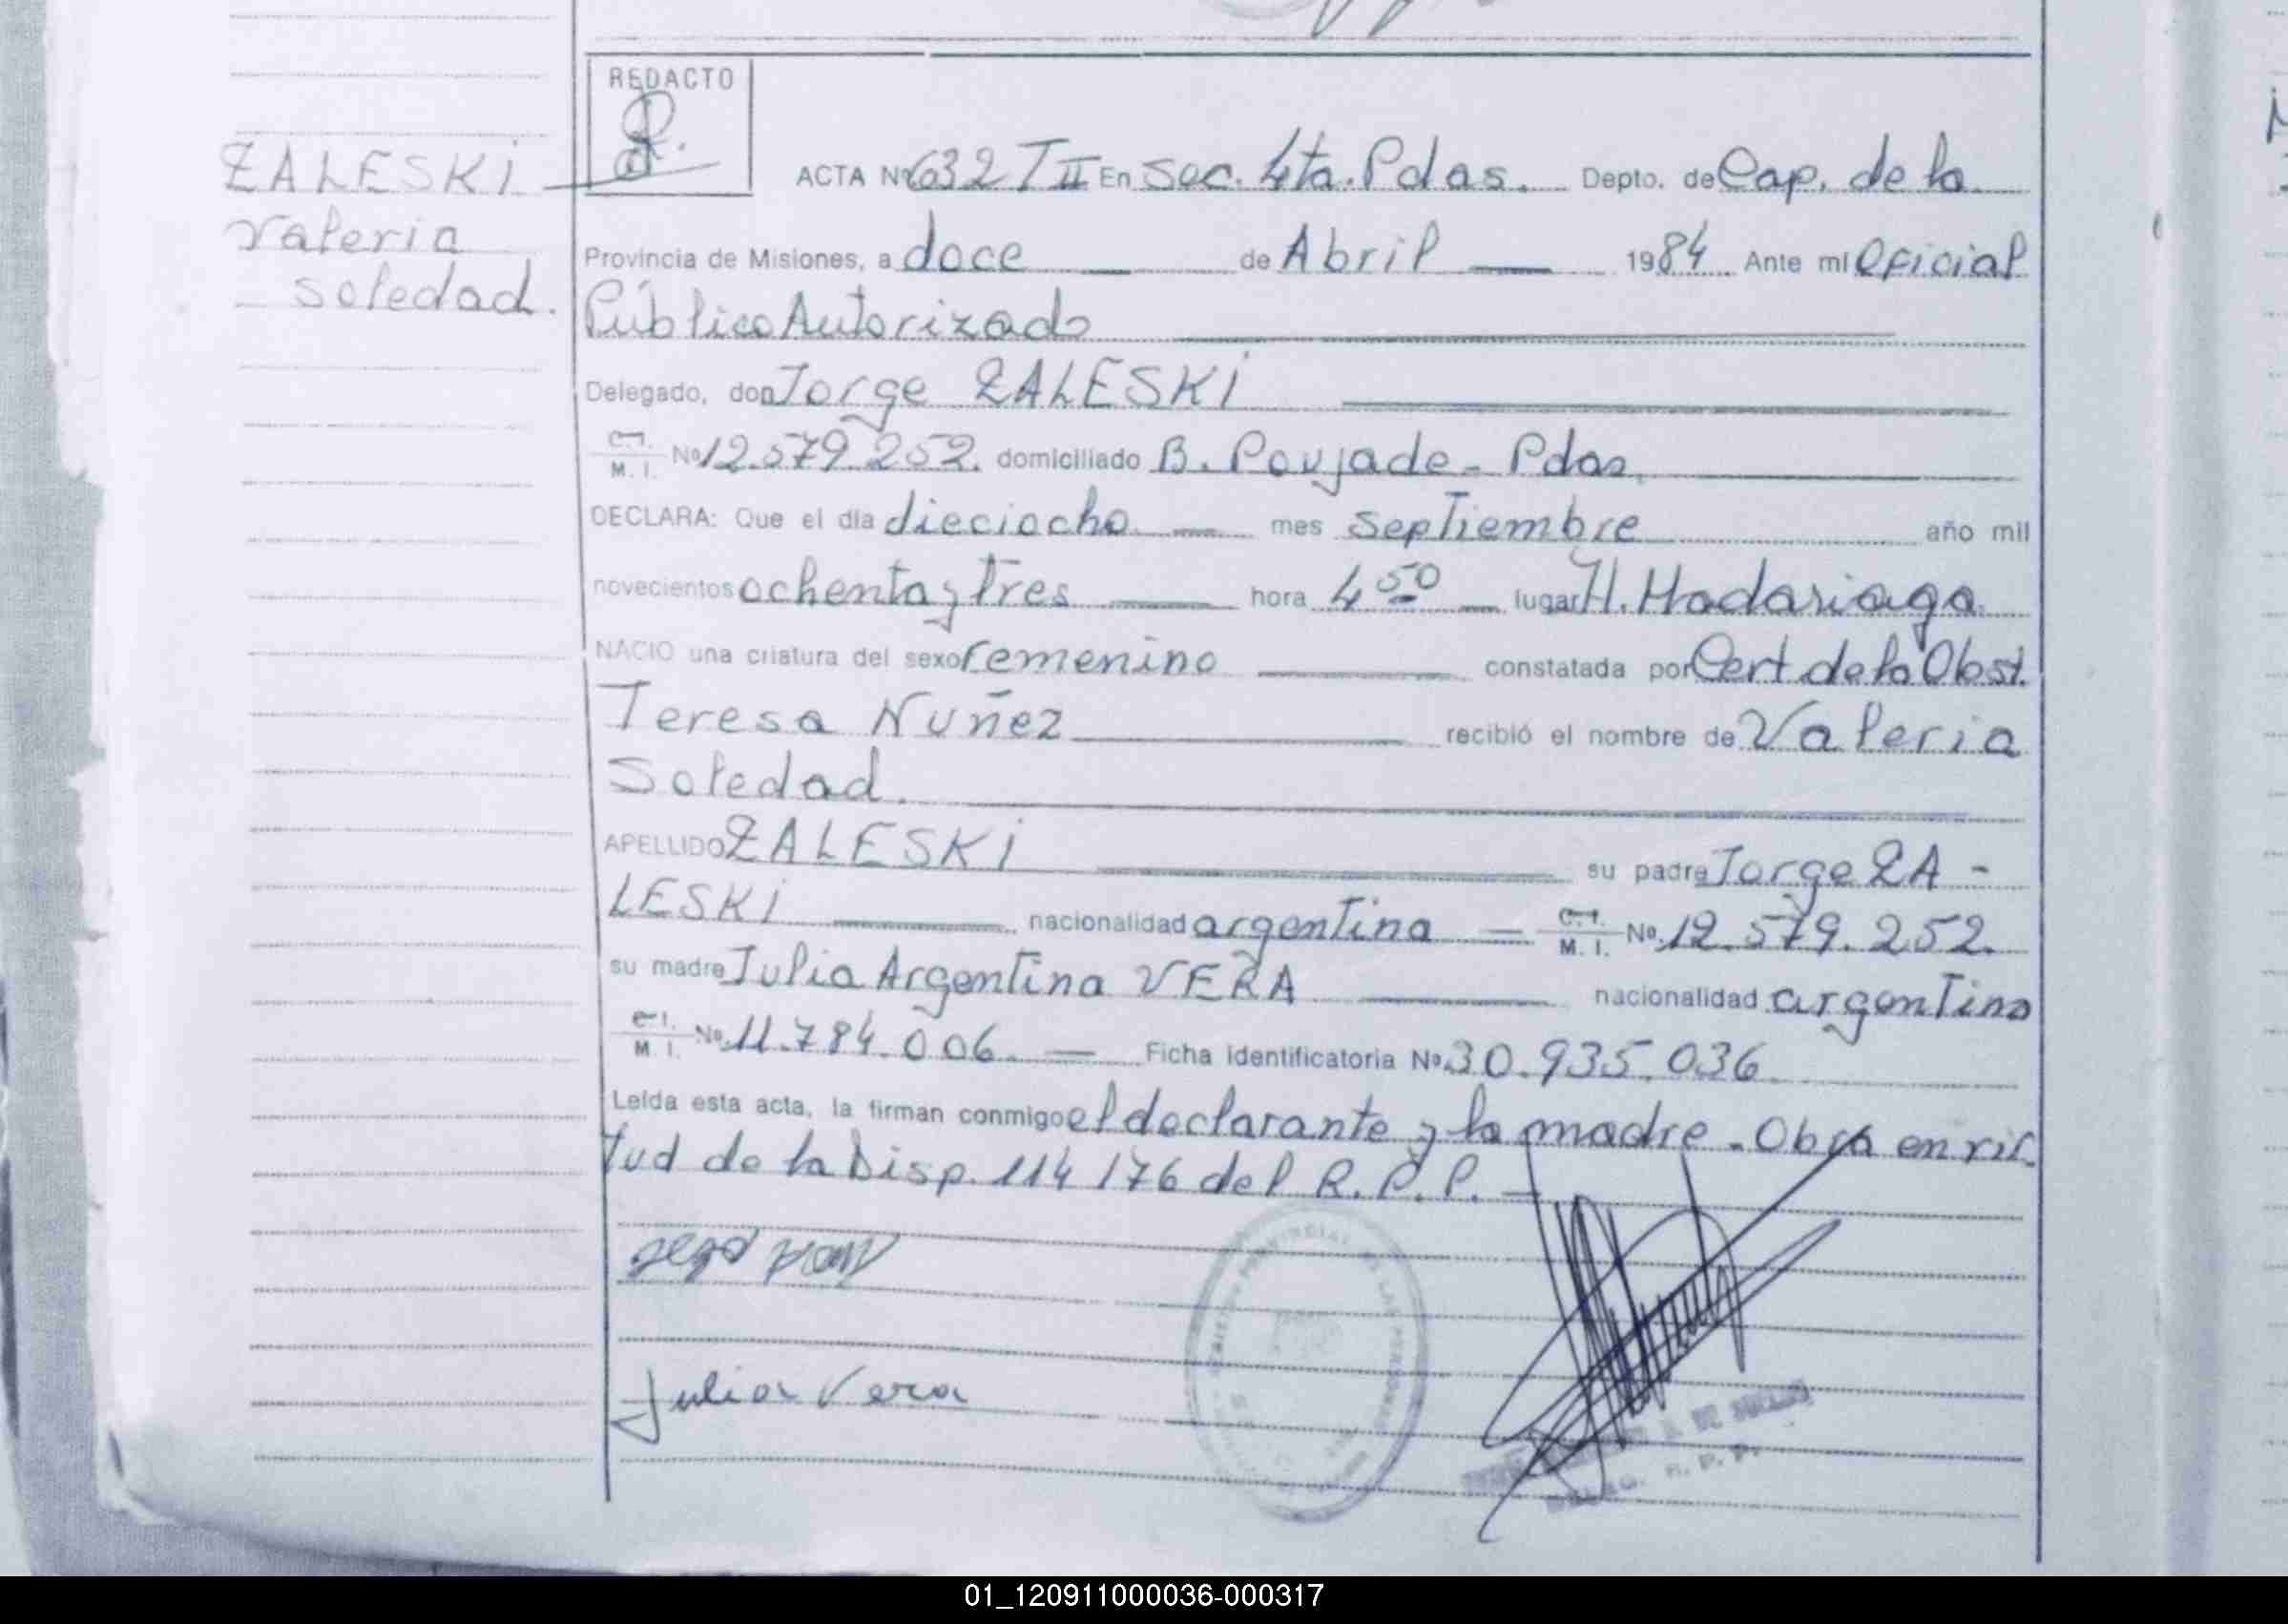 REDACTO
ZALESKI
Valeria
Soledad.
ACTA Nº 632 T II En Sec. 4ta. Pdas. Depto. de Cap. de la
Provincia de Misiones, a doce de Abril 1984 Ante mí Oficial
Público Autorizado
Delegado, don Jorge ZALESKI
C.I. M. I. Nº 12.579.252. domiciliado B. Poujade - Pdas.
DECLARA: Que el día dieciocho mes Septiembre año mil
novecientos ochenta y tres hora 4 50 lugar H. Madariaga
NACIO una criatura del sexo femenino constatada por Cert de la Obst.
Teresa Nuñez recibió el nombre de Valeria
Soledad.
APELLIDO ZALESKI su padre Jorge ZA -
LESKI nacionalidad argentina C.I. M. I. Nº 12.579.252.
su madre Julia Argentina VERA nacionalidad argentina
C.I. M. I. Nº 11.784.006. Ficha identificatoria Nº 30.935.036.
Leída esta acta, la firman conmigo el declarante y la madre. Obra en vir-
tud de la Disp. 114/76 del R.P.P.
Julia Vera
DELEG. R. P. P.
01_120911000036-000317